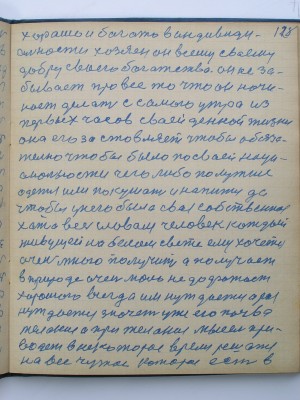 128
хорашо и богато в индивиди-
альности хозяен он всему своему
добру своего богатства он не за-
бывает про все то что он начи-
нает делать с самого утра из
первых часов своей денной жизни
она его заставляет чтобы обяза-
тельно чтобы было по своей наци-
ональности чего либо получше
одеть или покушать и напитки да
чтобы у него была своя собственная
хата всем словам человек каждый
живущей на белом свете ему хочется
очен много получить а получает
в природе очен мало не до
хорошого всегда им нужда
нужда значет уже его
желание а при желании мысел при-
водет в некоторое время
на все чужое которое есть в